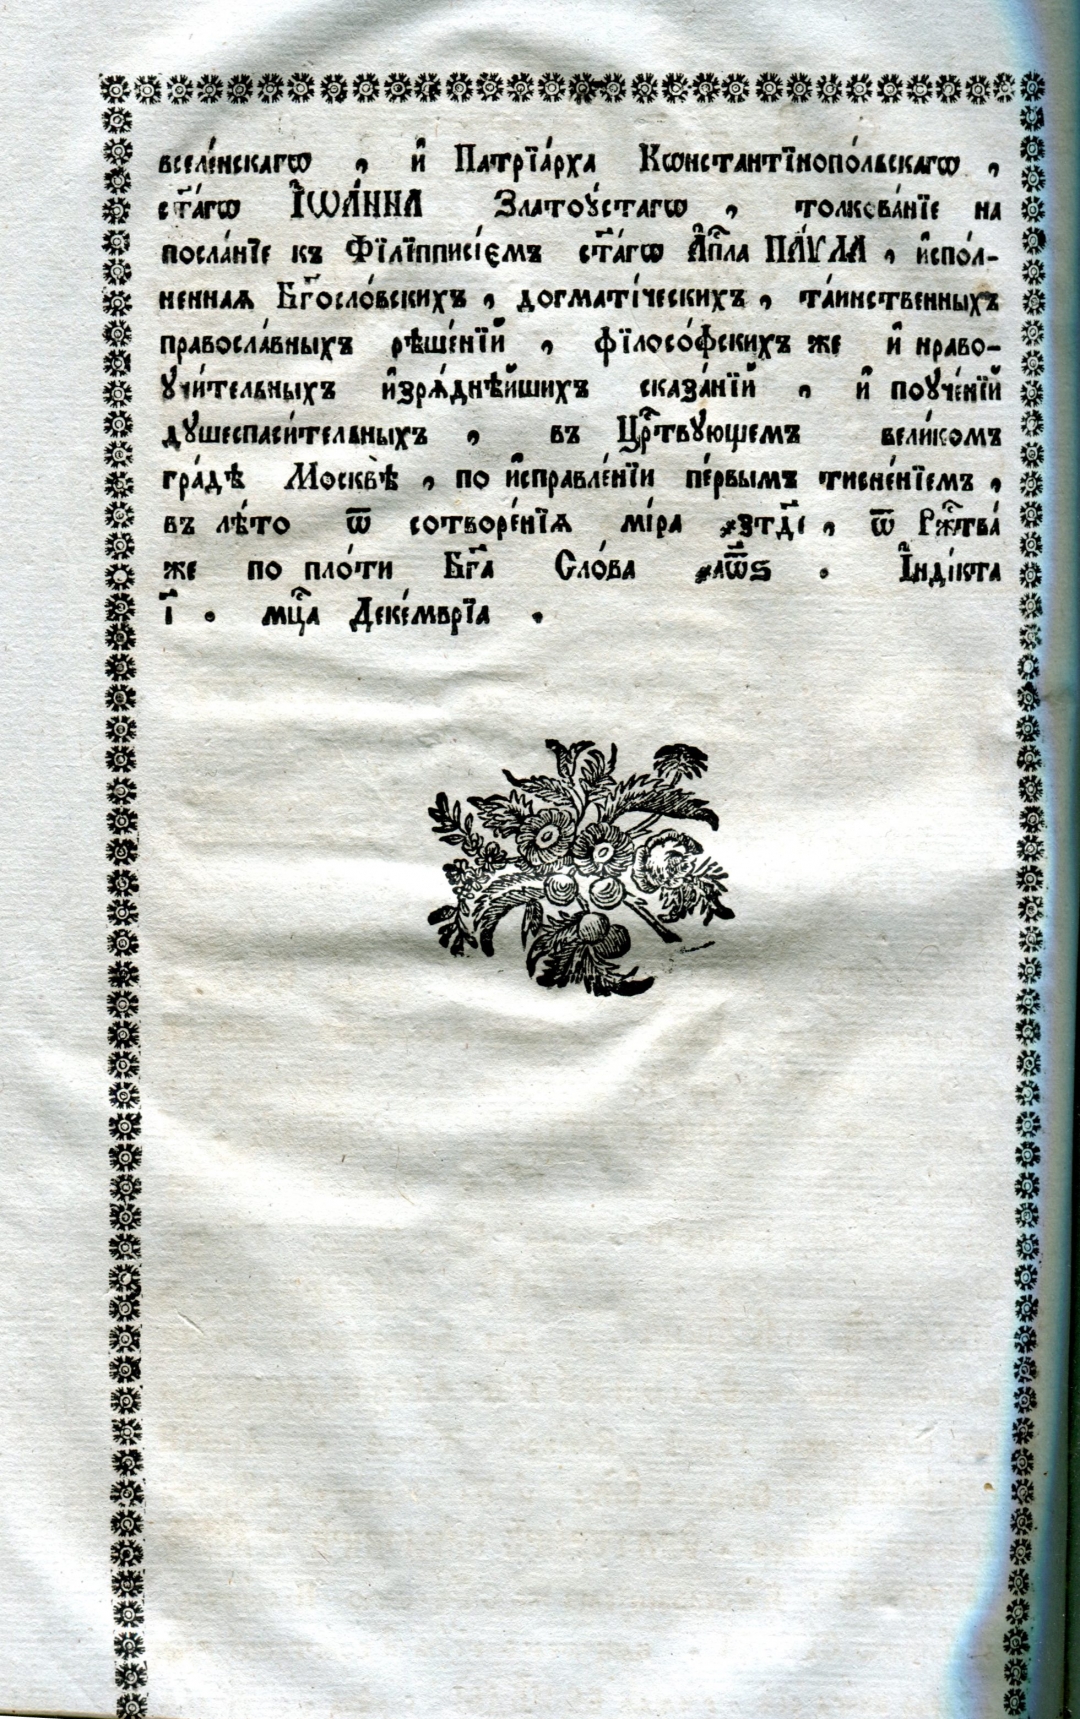 вселе́нскагѡ , и҆ Патрїа́рха Кѡнстантїнопо́льскагѡ ,
ст҃а́гѡ І҆ѠА́ННА Златоꙋ́стагѡ , толкова́нїе на
посла́нїе къ Фїлїпписі́ємъ ст҃а́гѡ А҆п҇ла ПА́ѴЛА , и҆спо́л-
ненная Бг҃осло́вскихъ , догмати́ческихъ , та́инственныхъ
правосла́вныхъ рѣше́нїй , фїлосо́фскихъ же и҆ нраво-
ꙋчи́тельныхъ и҆зрѧ́днѣйшихъ сказа́нїй , и҆ поꙋче́нїй
дꙋшеспаси́тельныхъ , въ Црⷭ҇твꙋющемъ вели́комъ
гра́дѣ Москвѣ̀ , по и҆справле́нїи пе́рвымъ тисне́нїемъ ,
въ лѣ́то ѿ сотворе́нїѧ мі́ра ҂зтд҃і , ѿ Рж҇тва́
же по пло́ти Бг҃а Сло́ва ҂аѿ҃ѕ . І҆ндїкта
і҃ . мц҇а Деке́мврїа .